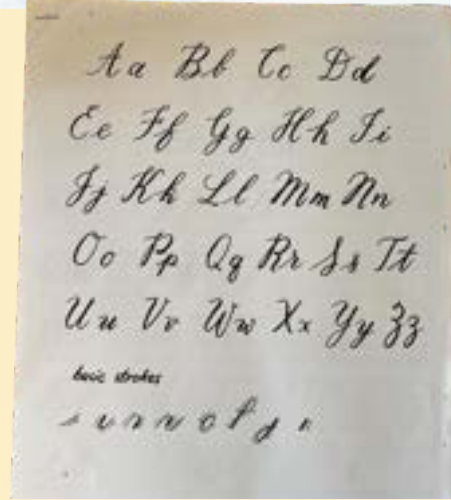 Aa Bb Cc Dd
Ee Ff Gg Hh Ii
Jj Kk Ll Mm Nn
Oo Pp Qq Rr Ss Tt
Uu Vv Ww Xx Yy Zz
basic strokes